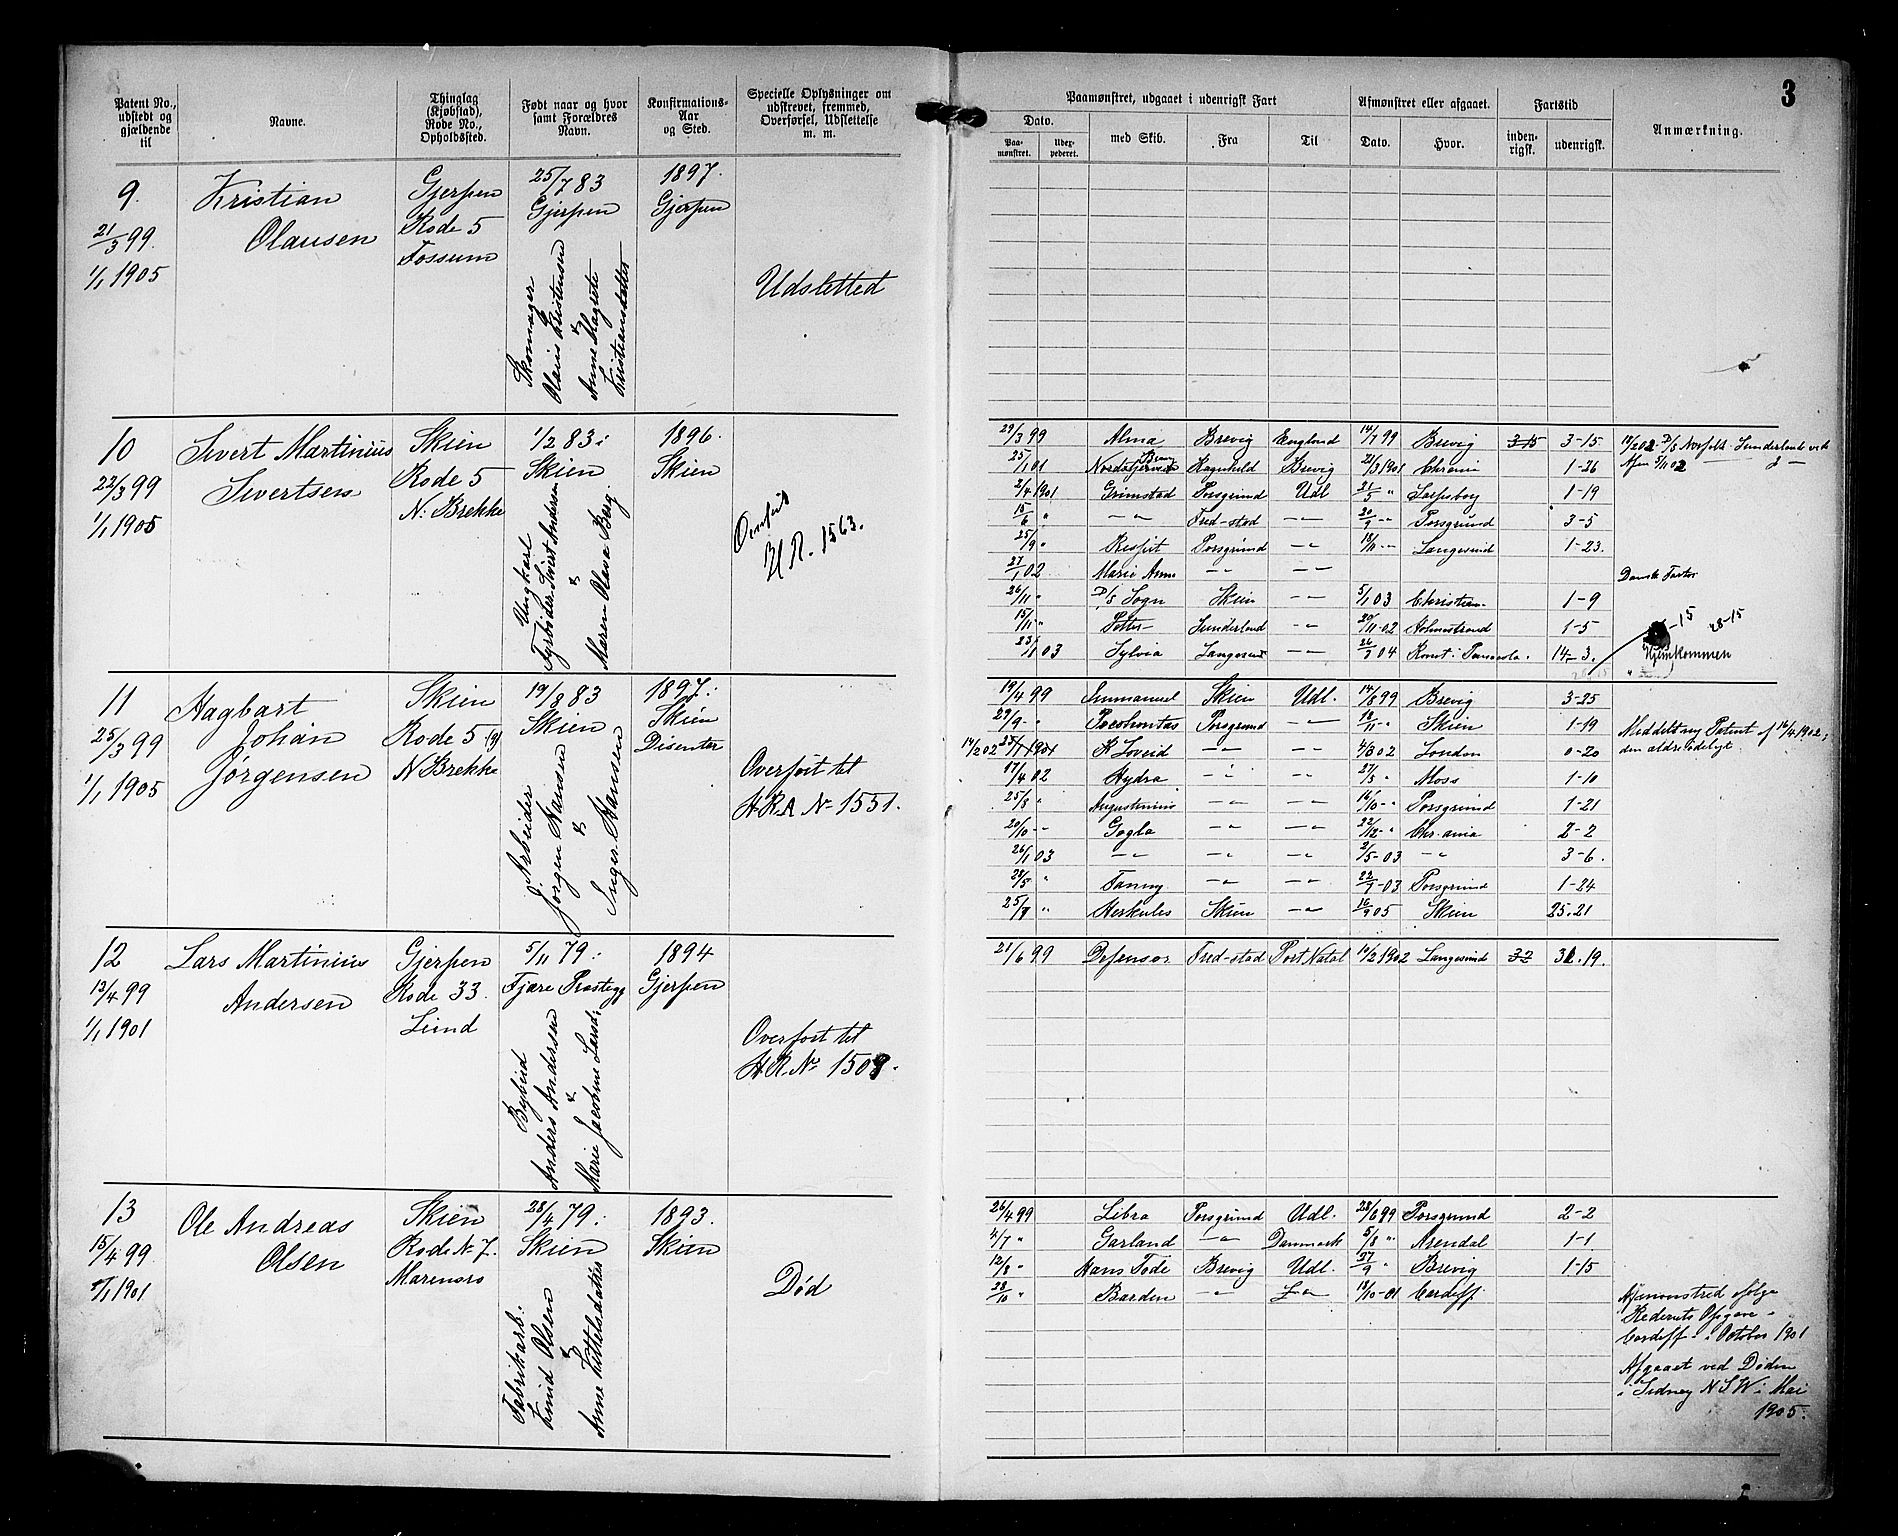 3
Patent No., udstedt og gjældende til | Navne. | Thinglag (Kjøbstad), Rode No., Opholdssted. | Født naar og hvor samt Forældres Navn. | Konfirmations-Aar og Sted. | Specielle Oplysninger om udskrevet, fremmed, Overførsel, Udslettelse m. m.
Paamønstret, udgaaet i udenrigsk Fart | Afmønstret eller afgaaet. | Fartstid | Anmærkning.
Dato. | med Skib. | Fra | Til | Dato. | Hvor. | inden-rigsk. | udenrigsk.
Paa-mønstret. | Udex-pederet.
9.
21/3 99
1/1 1905
Kristian
Olausen
Gjerpen
Rode 5
Fossum
25/7 83
Gjerpen
Skomager
Olaus Kristensen
&
Anne Margrete
Kristiansdatter
1897.
Gjerpen
Udslettet
10
22/3 99
1/1 1905
Sivert Martinius
Sivertsen
Skien
Rode 5
N. Brekke
1/2 83 i
Skien
Ungkarl
Fyrbøder Sivert Andersen
&
Maren Olava Berg.
1896.
Skien
Overført
H R. 1563.
29/3 99 | Alma | Brevig | England | 14/7 99 | Brevig | 3-15 | 3-15.
25/1 01 | Nordstjernen | Ragnhild | Brevig | 21/3 1901 | Chrania | 1-26
2/4 1901 | Grimstad | Porsgrund | Udl | 21/5 " | Sarpsborg | 1-19
15/6 " | -"- | Fred-stad | -"- | 20/9 -"- | Porsgrund | 3-5
25/9 " | Respit | Porsgrund | -"- | 18/11 -"- | Langesund | 1-23.
27/1 02 | Marie Anna | -"- | -"- | Dansk Fartøi
26/11 " | D/S Sogn | Skien | -"- | 5/1 03 | Christian. | 1-9
15/11 " | Potter | Sunderland | -"- | 20/11-02 | Holmestrand | 1-5
23/1 03 | Sylvia | Langesund | -"- | 26/9 04 | Konst: Pensacola. | 14-3.
28-15
Hjemkommen
11
25/3 99
1/1 1905
Hagbart
Johan
Jørgensen
Skien
Rode 5
N Brekke
19/9 83
Skien
Arbeider
Jørgen Hansen
&
Inger Hansen
1897.
Skien
Disenter
Overført til
H.R.A No 1551.
19/4 99 | Emmanuel | Skien | Udl. | 14/8 99 | Brevig | 3-25
29/9 -" | Pocohontas | Porsgrund | -"- | 18/11 " | Skien | 1-19
14/2 02 | K Loveid | -"- | -"- | 4/3 02 | London | 0-20
17/4 02 | Hydra | -"- | -"- | 27/5 " | Moss | 1-10
25/8 " | Augustinius | -"- | -"- | 16/10 -" | Porsgrund | 1-21
20/10 -" | Gogla | -"- | -"- | 22/12 -" | Chr.ania | 2-2
26/1 03 | -"- | -"- | -"- | 2/5-03 | -"- | 3-6.
28/5 " | Fanny | -"- | -"- | 22/7-03 | Porsgrund | 1-24
25/8 " | Herkules | Skien | -"- | 16/9 05 | Skien | 25.21
Meddelt ny Patent af 16/4 1902,
den ældre ødelagt.
12
13/4 99
1/1 1901
Lars Martinius
Andersen
Gjerpen
Rode 33.
Lund
5/11 79.
Fjære Prestegj
Bybud
Anders Andersen
&
Marie Jacobine Larsd.
1894
Gjerpen
Overført til
H.R. No 1508.
21/6 99 | Defensor | Fred-stad | Port Natal | 10/2 1902 | Langesund | 3-2 | 31.19.
13
15/4 99
1/1 1901
Ole Andreas
Olsen
Skien
Rode No 7.
Marensro
28/4 79.
Skien
Fabrikarb.
Knud Olsen
&
Anne Kittelsdatter
1893.
Skien
Død
26/4 99 | Libra | Porsgrund | Udl. | 28/6 99 | Porsgrund | 2-2
4/7 " | Garland | -"- | Danmark | 5/8 " | Arendal | 1-1
12/8 " | Hans Tode | Brevig | Udl. | 27/9 " | Brevig | 1-15
28/10 " | Barden | -"- | -"- | 18/10-01 | Cardiff
Afmønstred ifølge
Rederiets Opgave i
Cardiff - Octobr 1901
Afgaaet ved Døden
i Sidney N S W i Mai
1905.